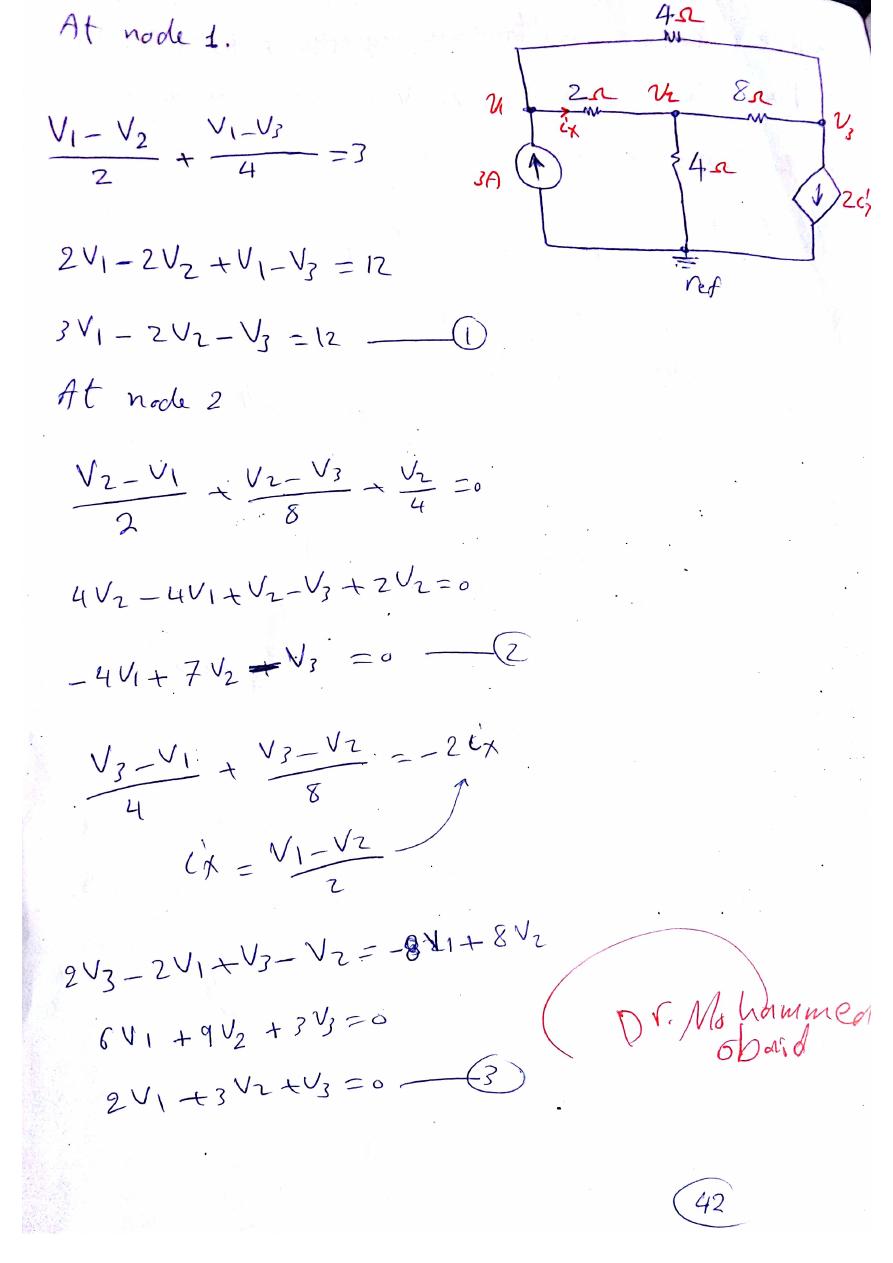 At node 1.
4Ω
2Ω V2 8Ω
V1 ix V3
3A 4Ω 2ix
ref
(V1 - V2)/2 + (V1 - V3)/4 = 3
2V1 - 2V2 + V1 - V3 = 12
3V1 - 2V2 - V3 = 12 —— ①
At node 2
(V2 - V1)/2 + (V2 - V3)/8 + V2/4 = 0
4V2 - 4V1 + V2 - V3 + 2V2 = 0
-4V1 + 7V2 - V3 = 0 —— ②
(V3 - V1)/4 + (V3 - V2)/8 = -2ix
ix = (V1 - V2)/2
2V3 - 2V1 + V3 - V2 = -8V1 + 8V2
6V1 + 9V2 + 3V3 = 0
2V1 + 3V2 + V3 = 0 —— ③
Dr. Mohammed
obaid
42